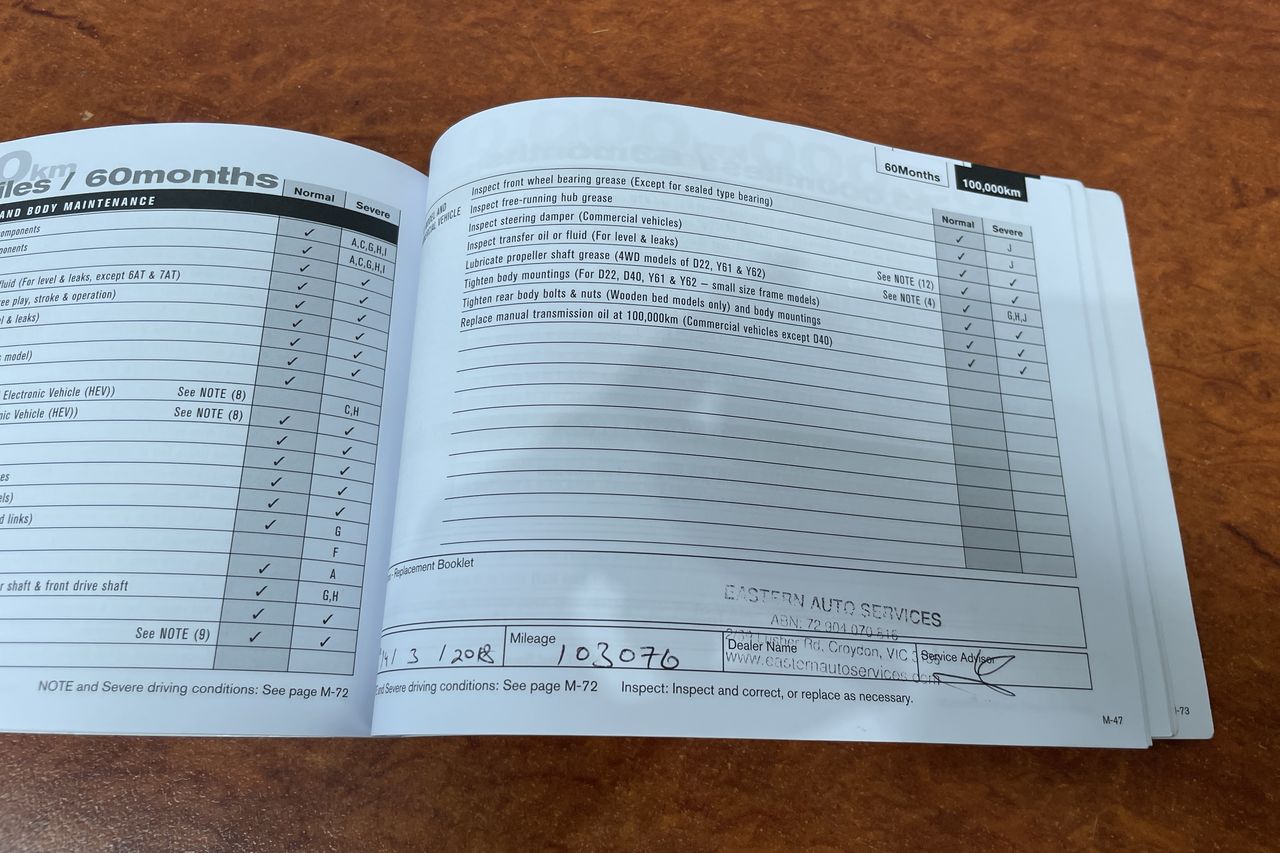 0km
iles / 60months
Normal
Severe
AND BODY MAINTENANCE
omponents ✓ A,C,G,H,I
ponents ✓ A,C,G,H,I
✓ ✓
fluid (For level & leaks, except 6AT & 7AT) ✓ ✓
ree play, stroke & operation) ✓ ✓
l & leaks) ✓ ✓
✓ ✓
s model) ✓
Electronic Vehicle (HEV)) See NOTE (8) C,H
nic Vehicle (HEV)) See NOTE (8) ✓ ✓
✓ ✓
✓ ✓
es ✓ ✓
els) ✓ ✓
d links) ✓ G
F
✓ A
r shaft & front drive shaft ✓ G,H
✓ ✓
See NOTE (9) ✓ ✓
NOTE and Severe driving conditions: See page M-72
60Months
100,000km
Normal
Severe
AND
VEHICLE
Inspect front wheel bearing grease (Except for sealed type bearing) ✓ J
Inspect free-running hub grease ✓ J
Inspect steering damper (Commercial vehicles) ✓ ✓
Inspect transfer oil or fluid (For level & leaks) See NOTE (12) ✓ ✓
Lubricate propeller shaft grease (4WD models of D22, Y61 & Y62) See NOTE (4) ✓ G,H,J
Tighten body mountings (For D22, D40, Y61 & Y62 – small size frame models) ✓ ✓
Tighten rear body bolts & nuts (Wooden bed models only) and body mountings ✓ ✓
Replace manual transmission oil at 100,000km (Commercial vehicles except D40) ✓ ✓
- Replacement Booklet
EASTERN AUTO SERVICES
ABN: 72 904 070 816
Lusher Rd, Croydon, VIC
www.easternautoservices.com
/ 3 / 2018
Mileage
103076
Dealer Name
Service Advisor
and Severe driving conditions: See page M-72
Inspect: Inspect and correct, or replace as necessary.
M-47
-73